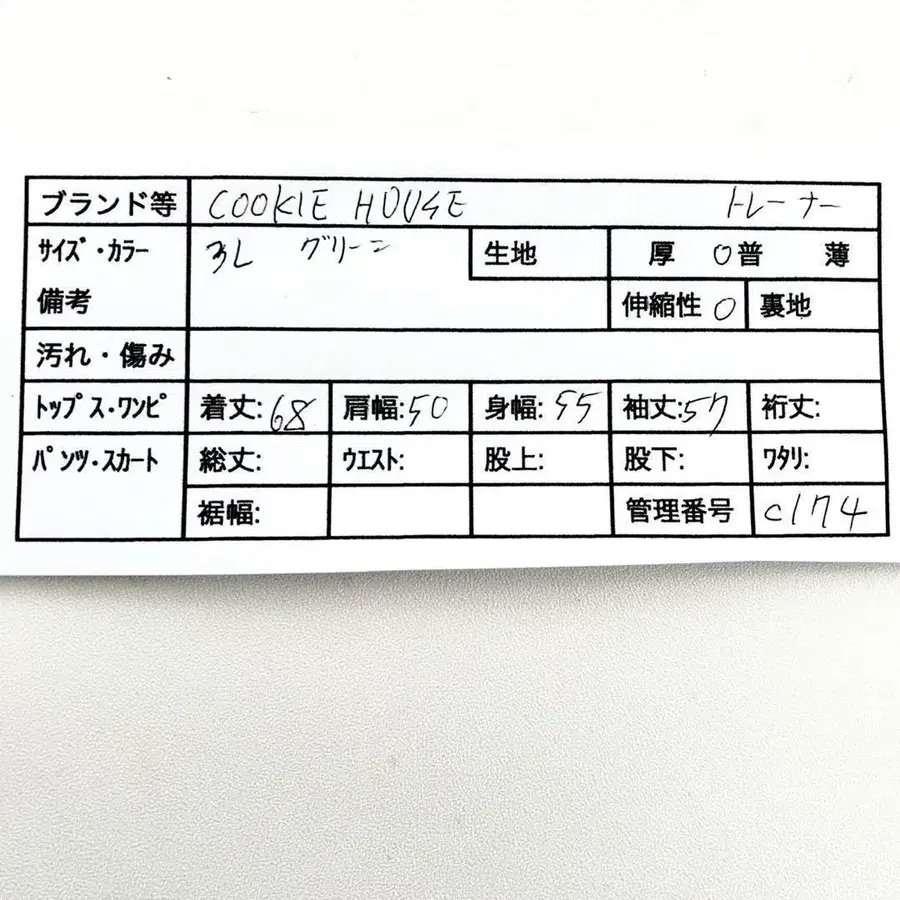 ブランド等 COOKIE HOUSE トレーナー
サイズ・カラー 3L グリーン 生地 厚 〇普 薄
備考 伸縮性 〇 裏地
汚れ・傷み
トップス・ワンピ 着丈:68 肩幅:50 身幅:55 袖丈:57 裄丈:
パンツ・スカート 総丈: ウエスト: 股上: 股下: ワタリ:
裾幅: 管理番号 C174